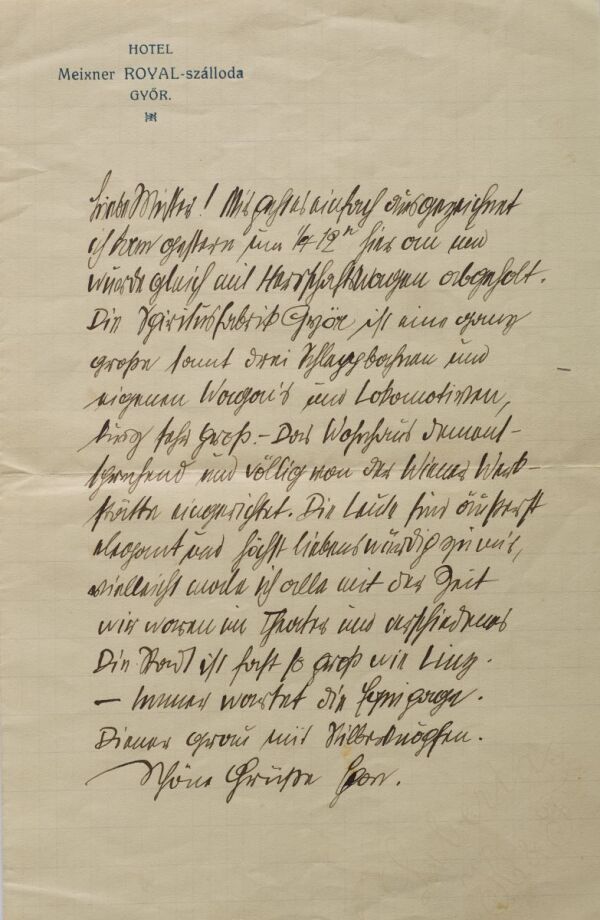 HOTEL
Meixner ROYAL-szálloda
GYŐR.
Liebe Mutter! Mir geht es einfach ausgezeichnet
ich kam gestern um 1/4 12 h hier an und
wurde gleich mit Herrschaftswagen abgeholt.
Die Spiritusfabrik Györ ist eine ganz
große samt drei Schleppbahnen und
eigenen Wagon's und Lokomotiven,
kurz sehr groß. – Das Wohnhaus dement-
sprechend und völlig von der Wiener Werk-
stätte eingerichtet. Die Leute sind äußerst
elegant und höchst liebenswürdig zu mir,
vielleicht male ich alle mit der Zeit
wir waren im Theater und verschiedenes
Die Stadt ist fast so groß wie Linz.
– Immer wartet die Equipage.
Diener grau mit Silberknöpfen.
Schöne Grüße Egon.